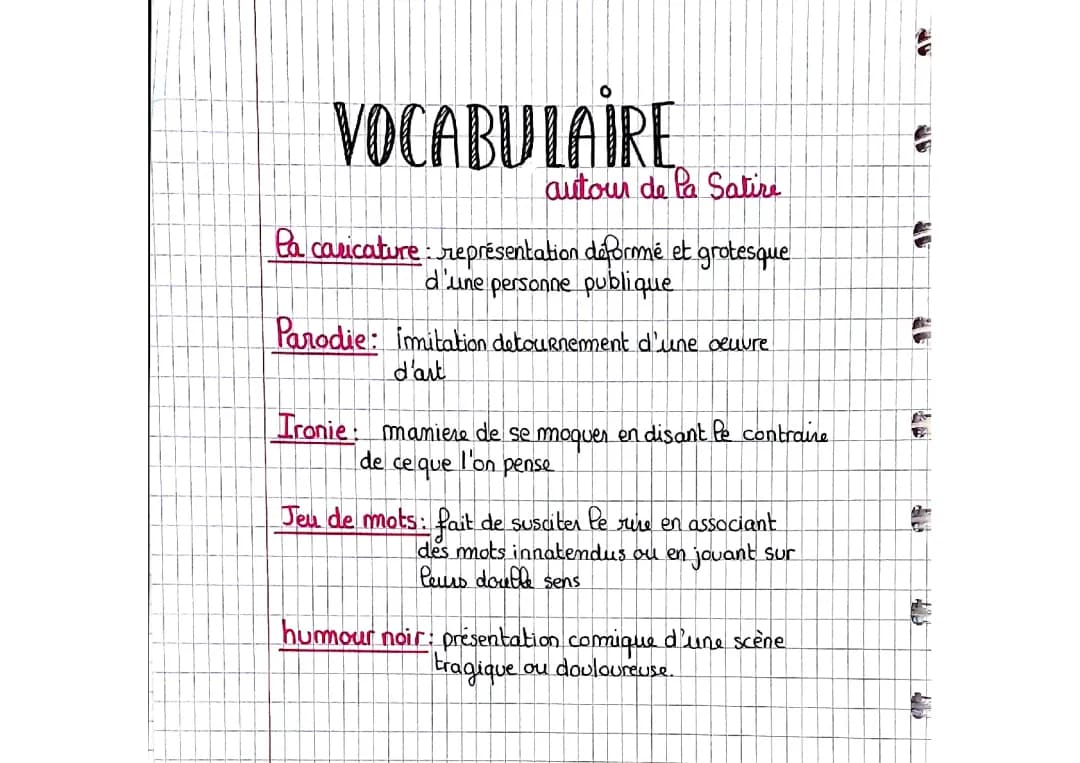 VOCABULAIRE
autour de la Satire
la caricature : représentation déformé et grotesque
d'une personne publique
Parodie : imitation detournement d'une oeuvre
d'art
Ironie : maniere de se moquer en disant le contraire
de ce que l'on pense
Jeu de mots : fait de susciter le rire en associant
des mots innatendus ou en jouant sur
leurs double sens
humour noir : présentation comique d'une scène
tragique ou douloureuse.